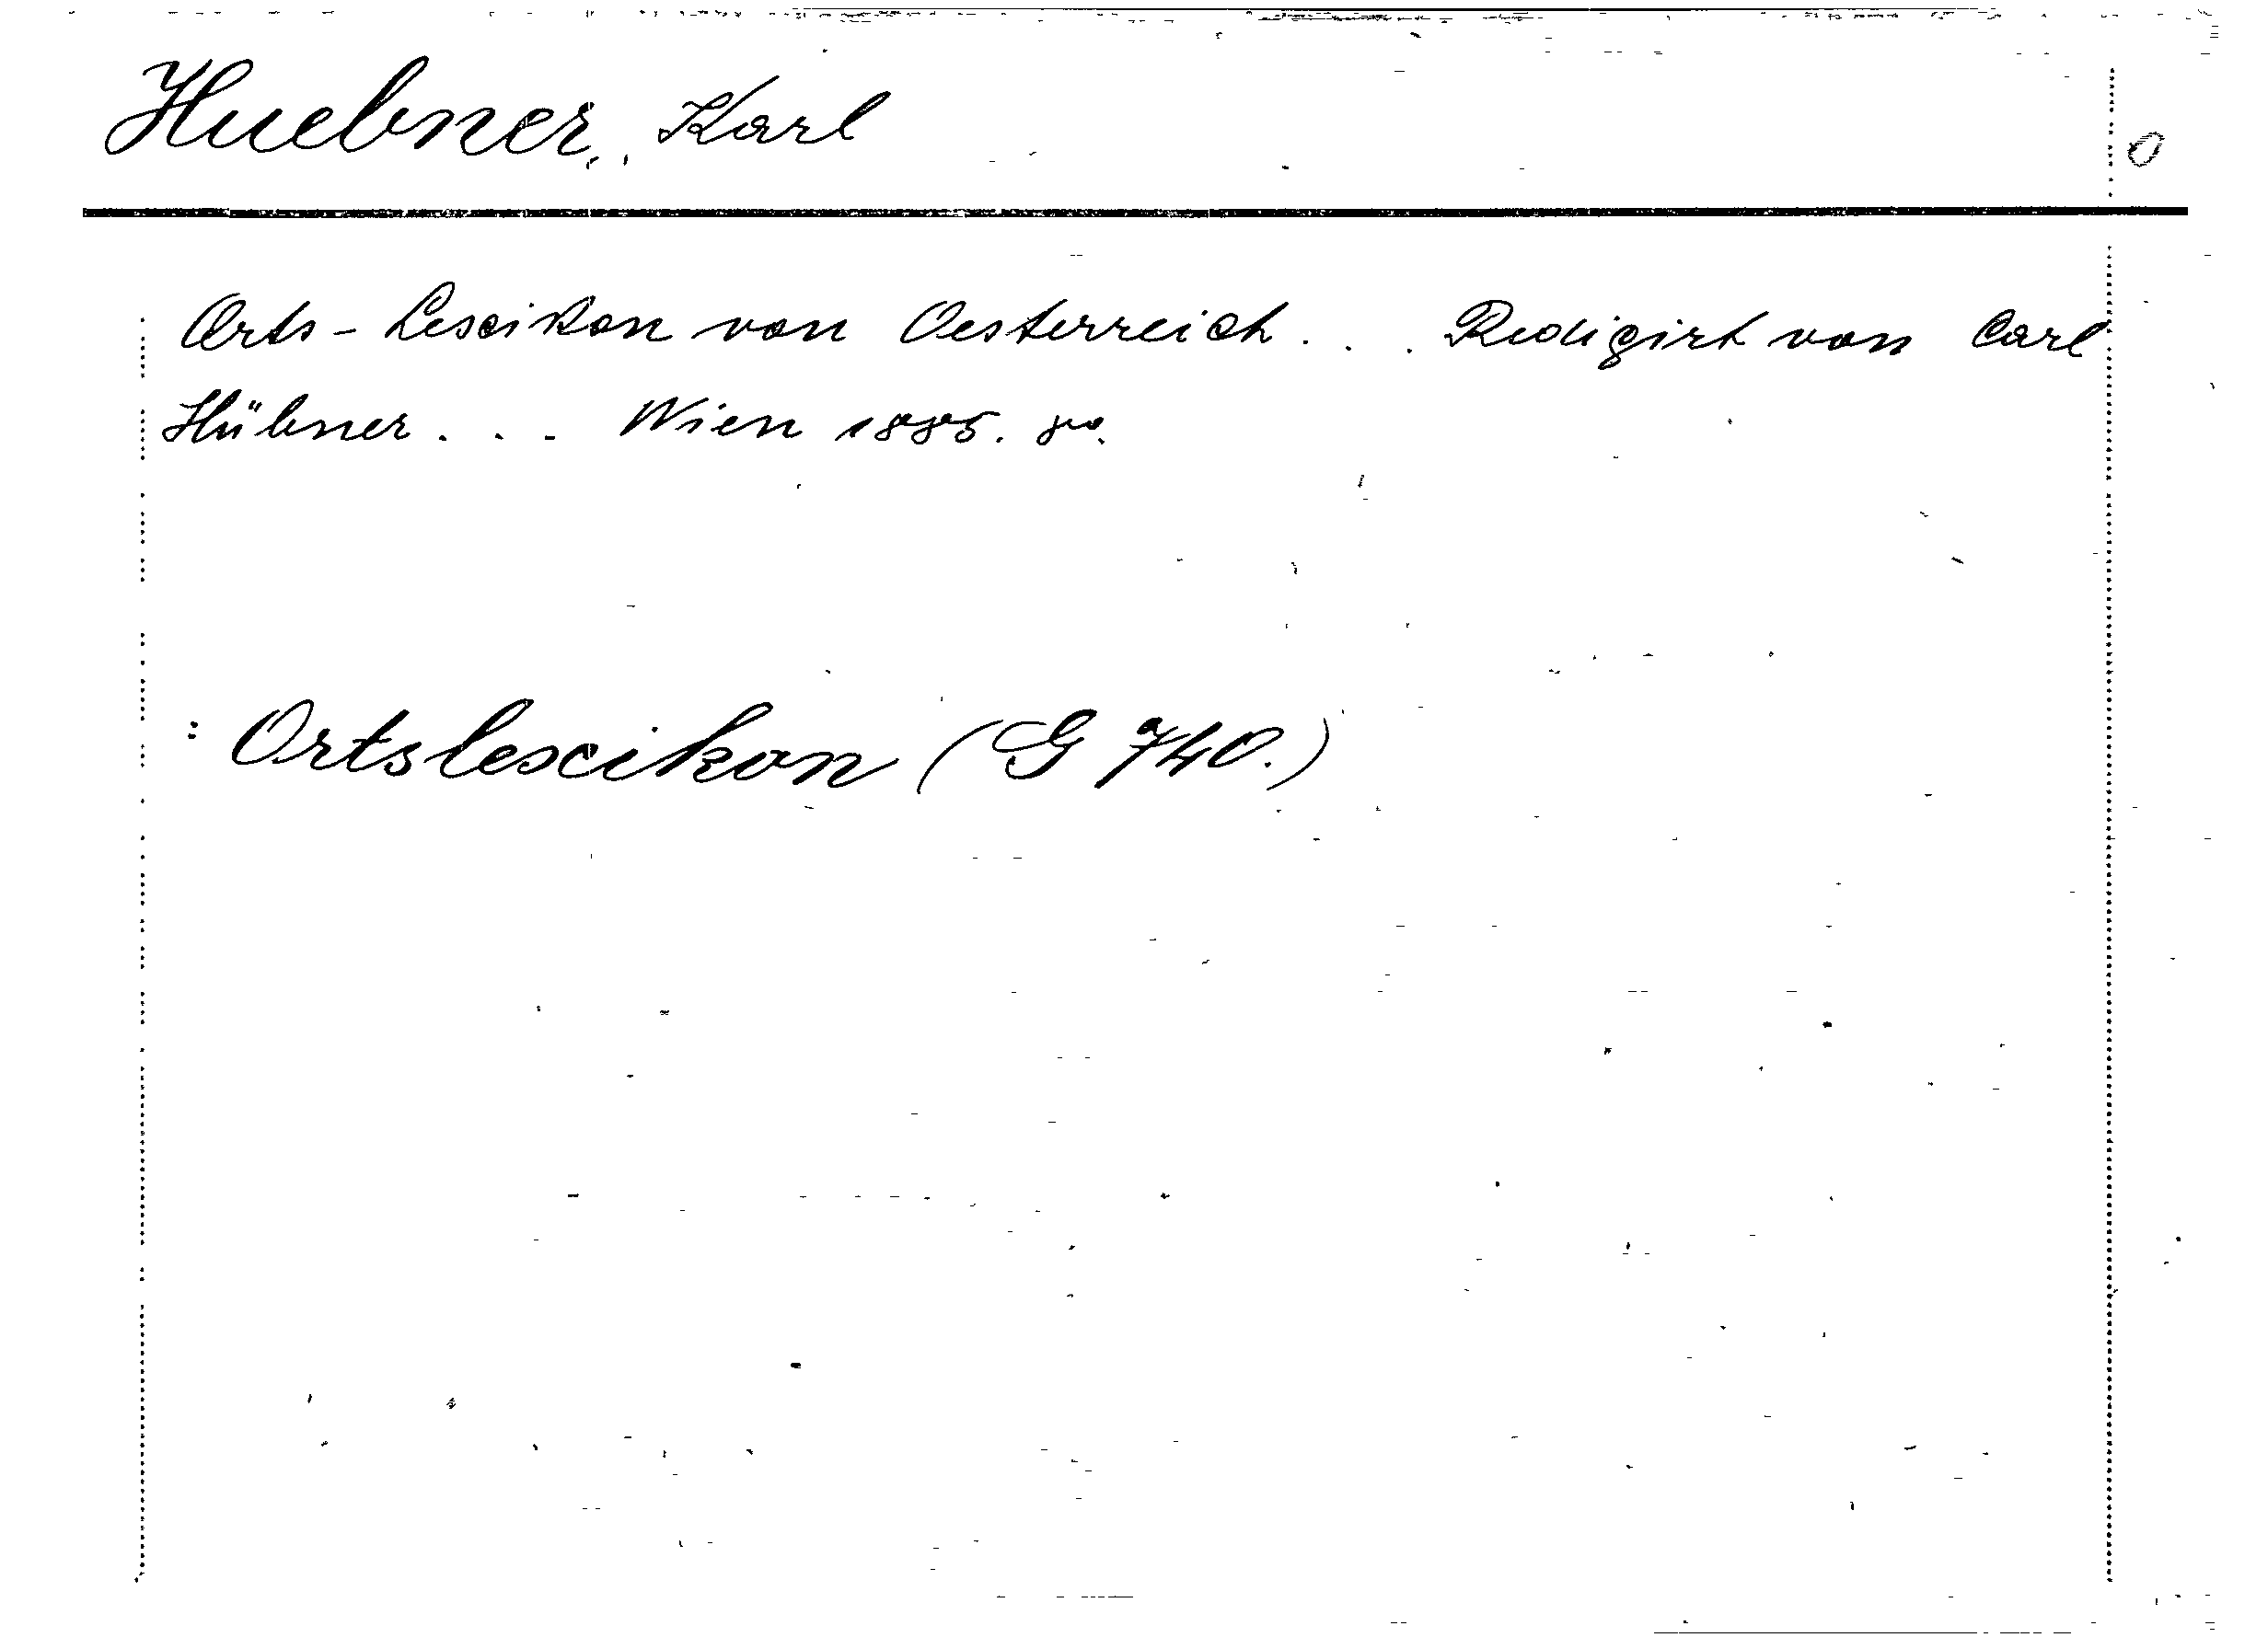 Huebner, Karl
O
Orts-Lexikon von Oesterreich . . . Redigirt von Carl
Hübner . . . Wien 1885. 8vo.
: Ortslexikon (G 740.)